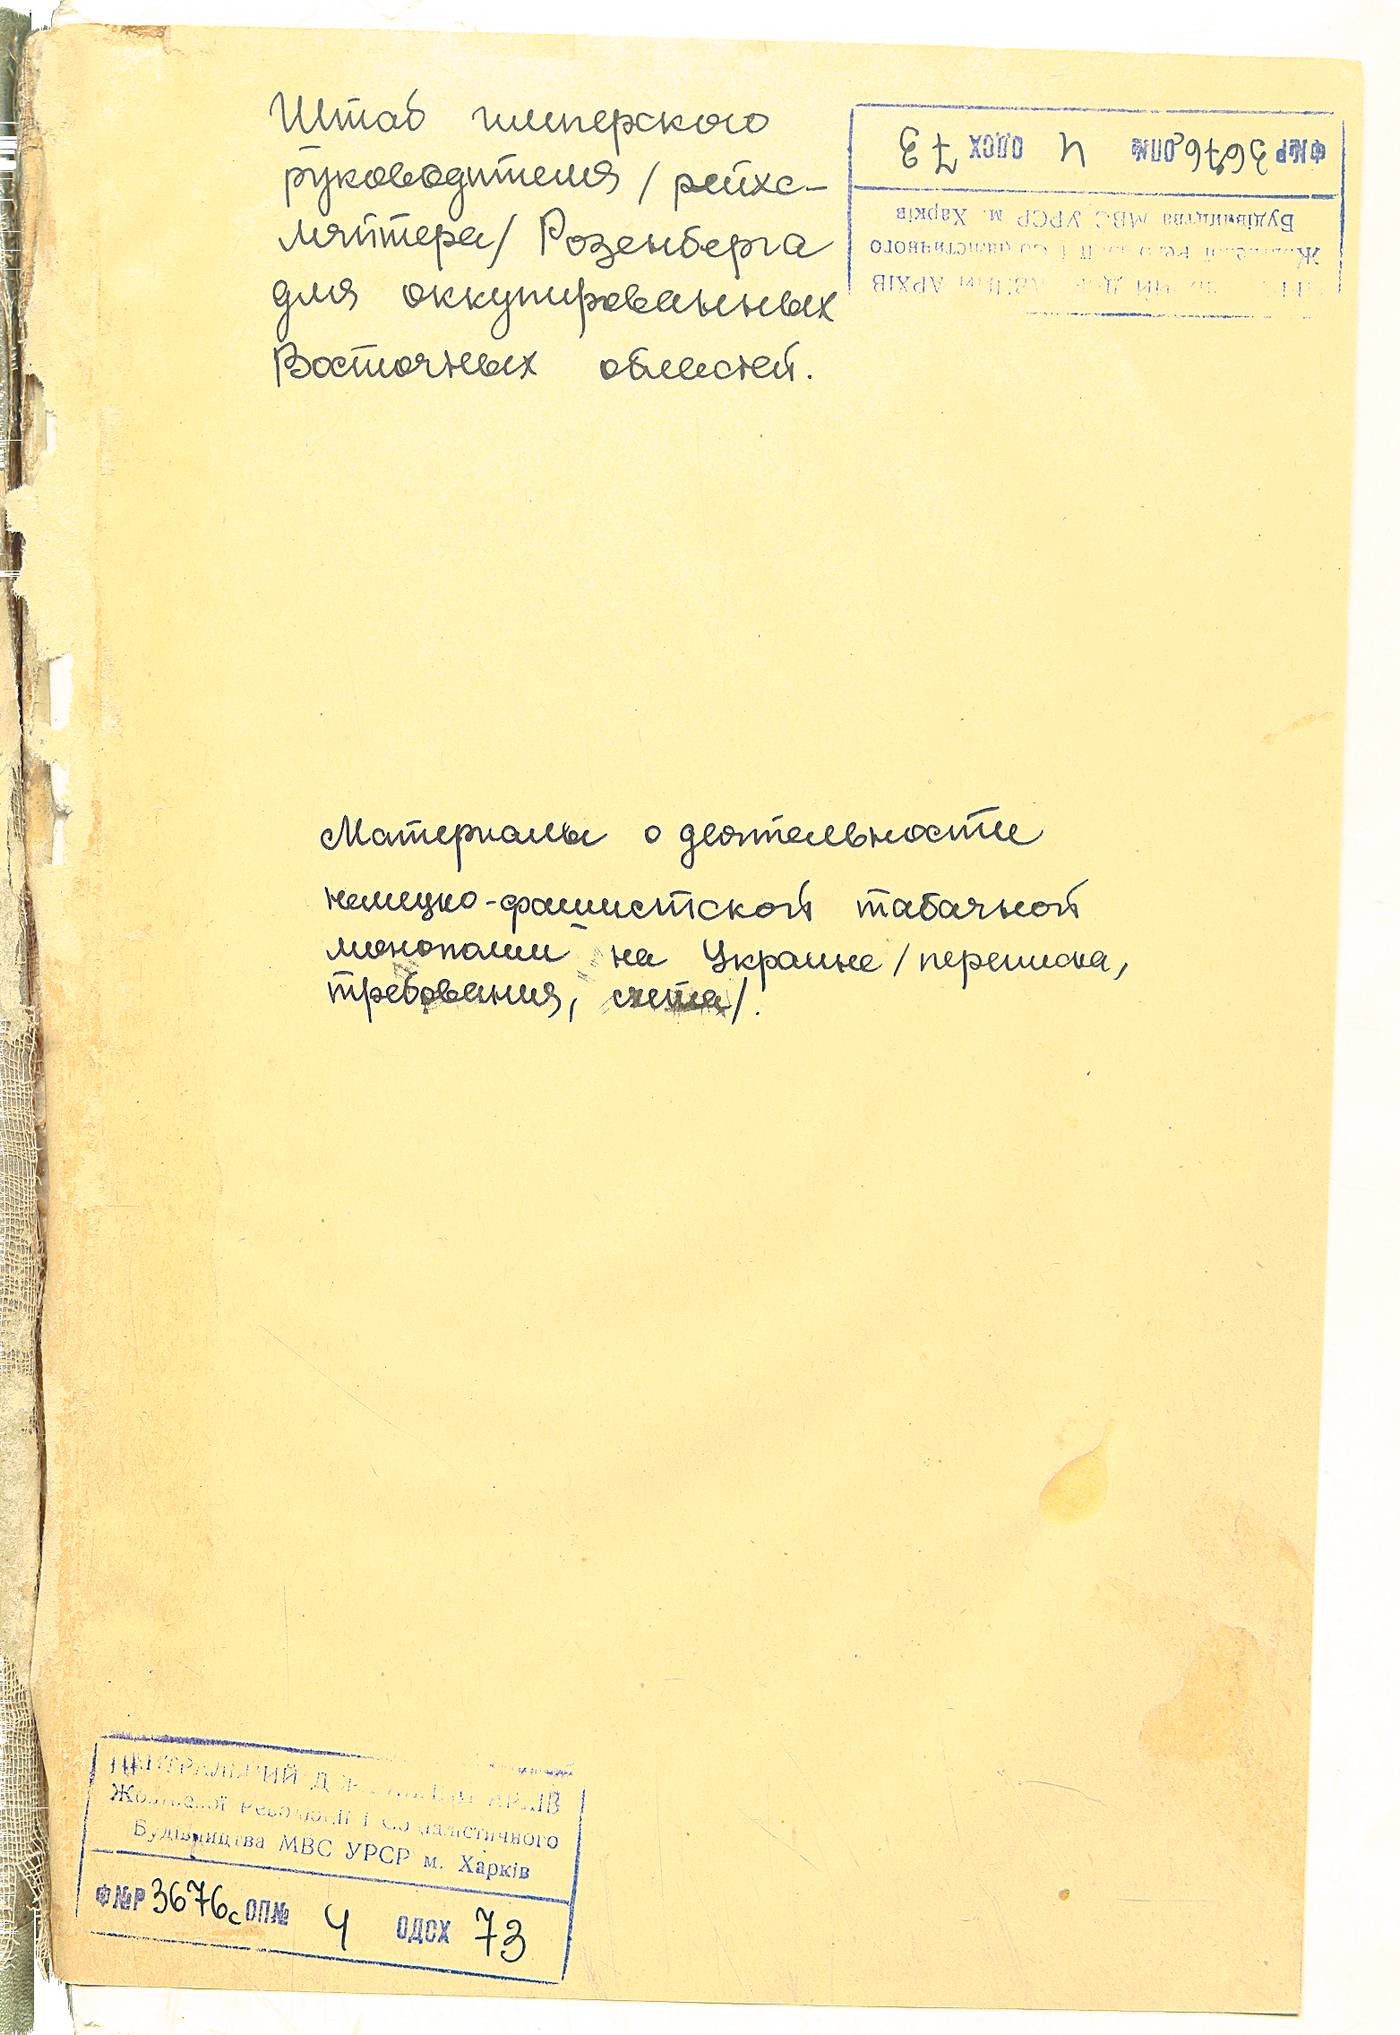 Штаб имперского
руководителя / рейхс-
ляйтера / Розенберга
для оккупированных
Восточных областей.
Ф№Р 3676с ОП№ 4 ОДСХ 73
Будівництва МВС УРСР м. Харків
Жовтневої Революції і Соціалістичного
АРХІВ
Материалы о деятельности
немецко-фашистской табачной
монополии на Украине / переписка,
требования, счета /.
ЦЕНТРАЛЬНИЙ ДЕРЖАВНИЙ АРХІВ
Жовтневої Революції і Соціалістичного
Будівництва МВС УРСР м. Харків
Ф№Р 3676с ОП№ 4 ОДСХ 73